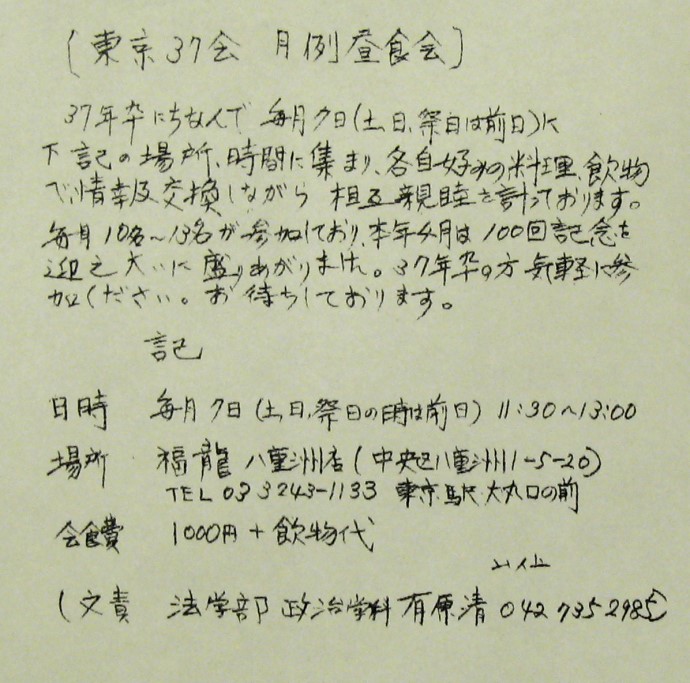 (東京37会 月例昼食会)
37年卒にちなんで 毎月7日(土、日、祭日は前日)に
下記の場所、時間に集まり、各自好みの料理、飲物
で、情報交換しながら 相互親睦を計っております。
毎月10名〜13名が参加しており、本年4月は100回記念を
迎え大いに盛りあがりました。37年卒の方気軽に参
加ください。お待ちしております。
記
日時 毎月7日(土、日、祭日の時は前日) 11:30〜13:00
場所 福龍 八重洲店(中央区八重洲1-5-20)
TEL 03 3243-1133 東京駅 大丸口の前
会食費 1000円+飲物代
以上
(文責 法学部 政治学科 有原清 042 735 2985)